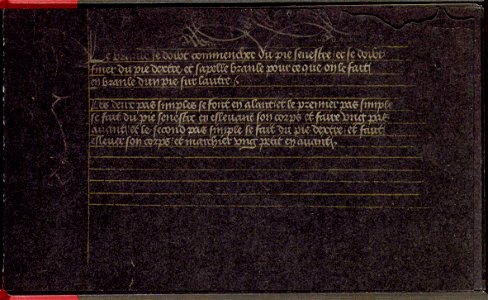 Le branle se doibt commencher du pie senestre et se doibt
finer du pie dextre et sapelle branle pour ce que on le fait
en branle dun pie sur lautre
Les deux pas simples se font en alant et le premier pas simple
se fait du pie senestre en esleuant son corps et faire vng pas
auant et le second pas simple se fait du pie dextre et fault
esleuer son corps et marchier vng petit en auant